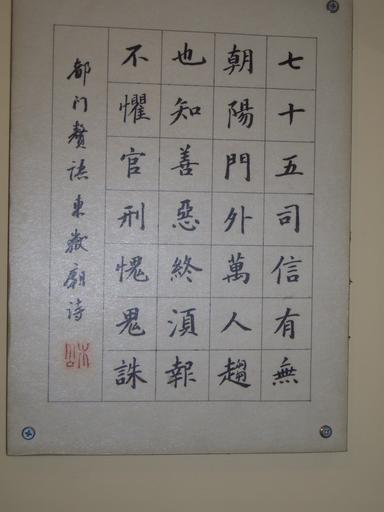 七十五司信有無
朝陽門外萬人趨
也知善惡終須報
不懼官刑愧鬼誅
都门贅语東嶽廟诗